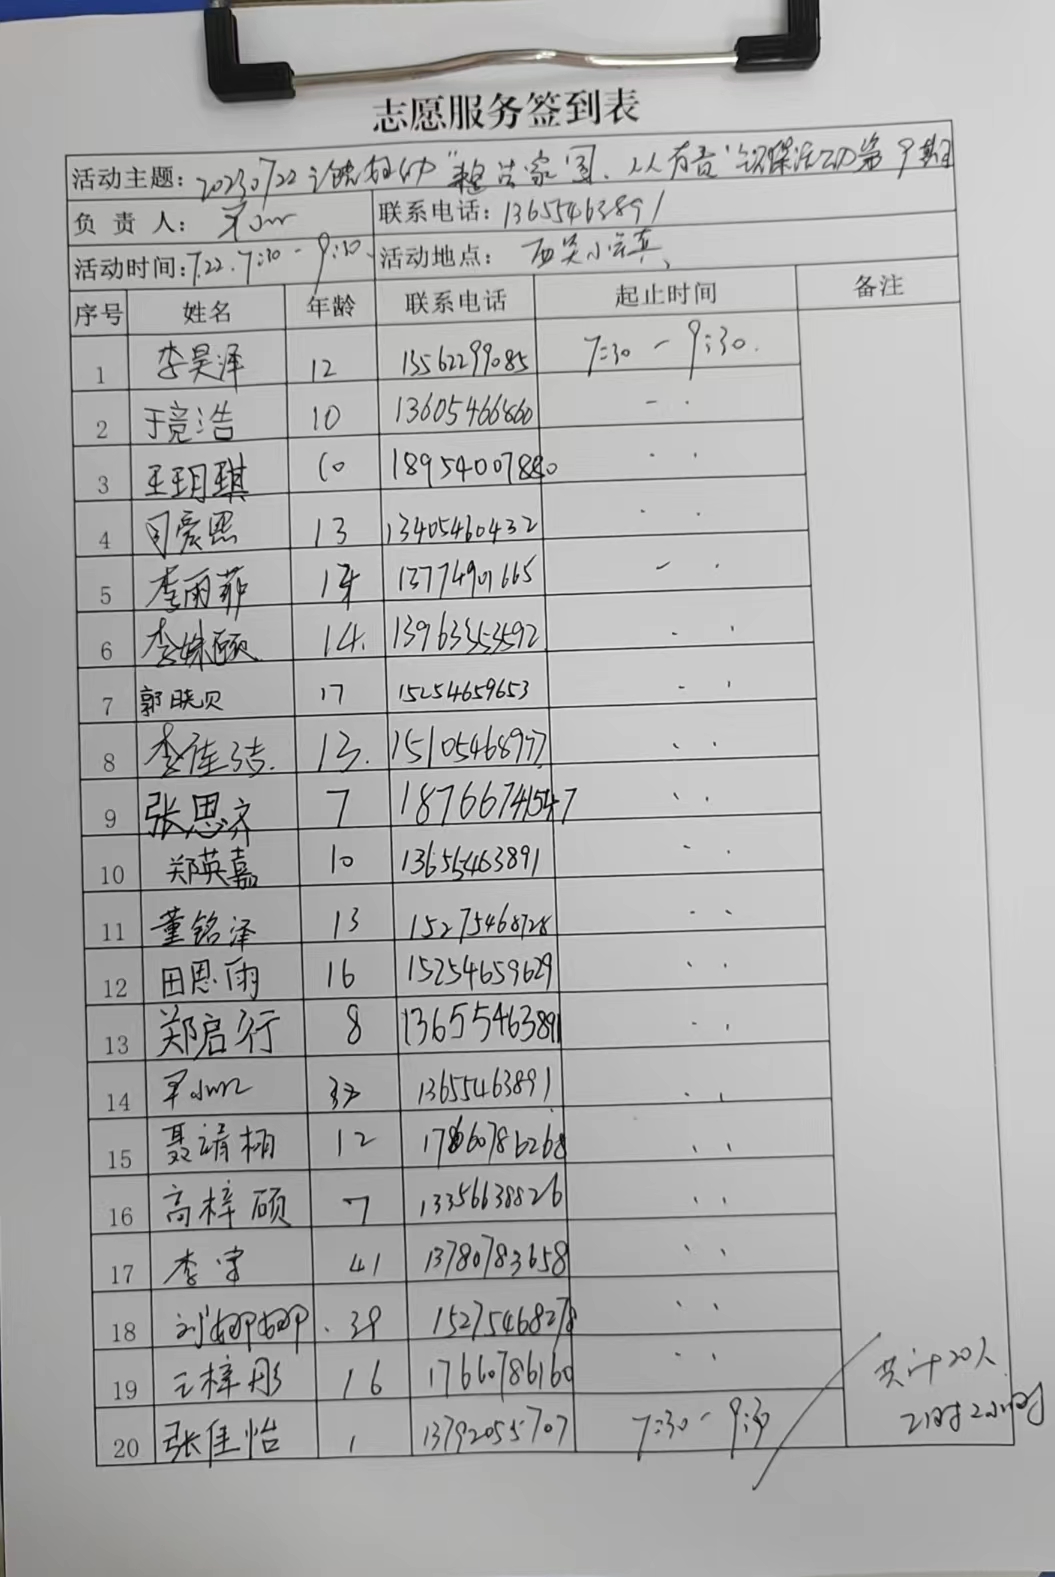 志愿服务签到表
活动主题: 20230722 "整洁家园、人人有责"环保活动第9期
负责人: 联系电话: 13655463891
活动时间: 7.22. 7:30 - 9:30 活动地点:
序号 姓名 年龄 联系电话 起止时间 备注
1 李昊泽 12 13562299085 7:30 - 9:30.
2 于竞浩 10 13605466860
3 王玥琪 10 18954007880
4 司爱恩 13 13405460432
5 李雨菲 13774901665
6 李姝颐 14. 13963353592
7 郭晓贝 17 15254659653
8 李佳洁. 13. 15105468977
9 张思齐 7 18766741547
10 郑英嘉 10 13655463891
11 董铭泽 13 15275468728
12 田恩雨 16 15254659629
13 郑启行 8 13655463891
14 13655463891
15 聂靖栩 12 17860786268
16 高梓硕 7 13356638826
17 李宁 41 13780783658
18 刘娜娜. 39 15275468278
19 王梓彤 16 17660786160
20 张佳怡 13792055707 7:30 - 9:30
共计20人
2小时